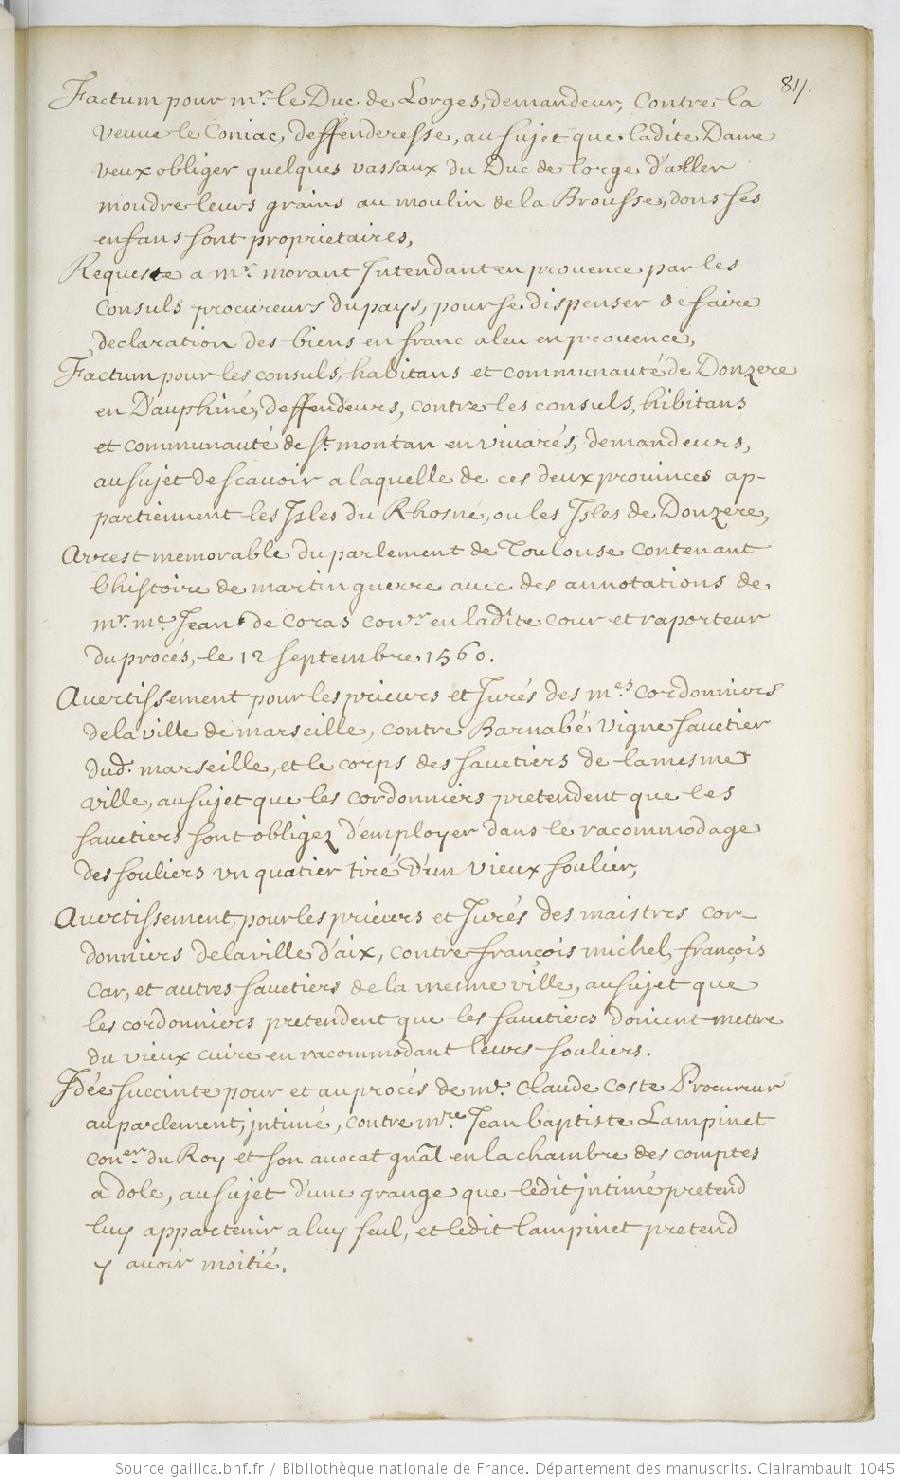 84
Factum pour mr. le Duc de Lorges, demandeur, Contre la
veuve le Coniac, deffenderesse, au sujet que ladite Dame
veux obliger quelques vassaux du Duc de Lorge d'aller
moudre leurs grains au moulin de la Brousse, dons ses
enfans sont proprietaires,
Requeste a mr. morant Intendant en provence par les
Consuls procureurs du pays, pour se dispenser de faire
declaration des biens en franc aleu en provence,
Factum pour les consuls, habitans et communauté de Donzere
en Dauphiné, deffendeurs, contre les consuls, hibitans
et communauté de St. montan en vivarés, demandeurs,
au sujet de scavoir a laquelle de ces deux provinces ap-
partiennent les Isles du Rhosne, ou les Isles de Donzere,
Arrest memorable du parlement de Toulouse contenant
l'histoire de martin guerre avec des annotations de
mr. me. Jean de Coras conr. en ladite cour et raporteur
du procés, le 12 septembre 1560.
Avertissement pour les prieurs et Jurés des mes. cordonniers
de la ville de marseille, contre Barnabé Vigne savetier
dud. marseille, et le corps des savetiers de la mesme
ville, au sujet que les cordonniers pretendent que les
savetiers sont obligez d'employer dans le racommodage
des souliers un quatier tiré d'un vieux soulier,
Avertissement pour les prieurs et Jurés des maistres cor-
donniers de la ville d'aix, contre françois michel, françois
Car, et autres savetiers de la mesme ville, au sujet que
les cordonniers pretendent que les savetiers doivent mettre
du vieux cuire en racommodant leurs souliers.
Idée succinte pour et au procés de mr. claude Coste Procureur
au parlement, intimé, contre mre. Jean baptiste Lampinet
coner. du Roy et son avocat gnāl en la chambre des comptes
a dole, au sujet d'une grange que ledit intimé pretend
luy appartenir a luy seul, et ledit lampinet pretend
y avoir moitié.
Source gallica.bnf.fr / Bibliothèque nationale de France. Département des manuscrits. Clairambault 1045